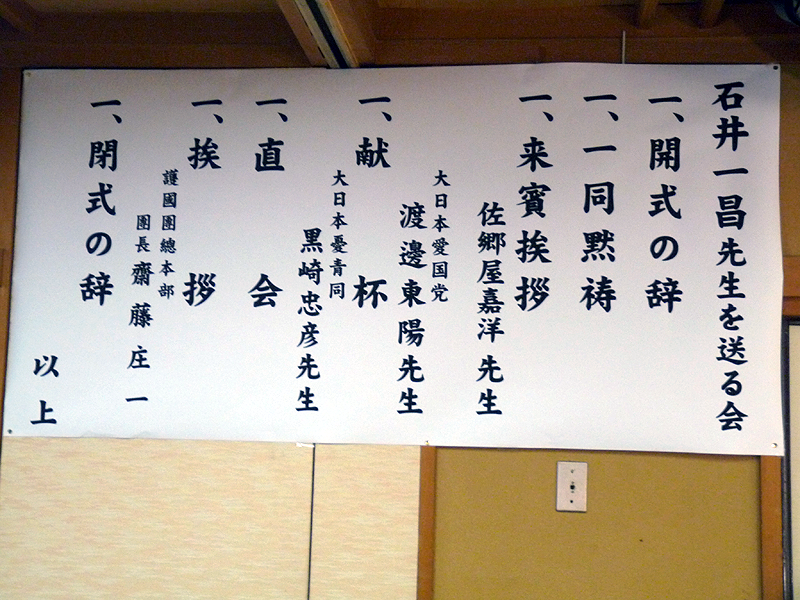 石井一昌先生を送る会
一、開式の辞
一、一同黙祷
一、来賓挨拶
佐郷屋嘉洋先生
大日本愛国党
渡邊東陽先生
一、献杯
大日本憂青同
黒崎忠彦先生
一、直会
一、挨拶
護國團總本部
團長 齋藤庄一
一、閉式の辞
以上